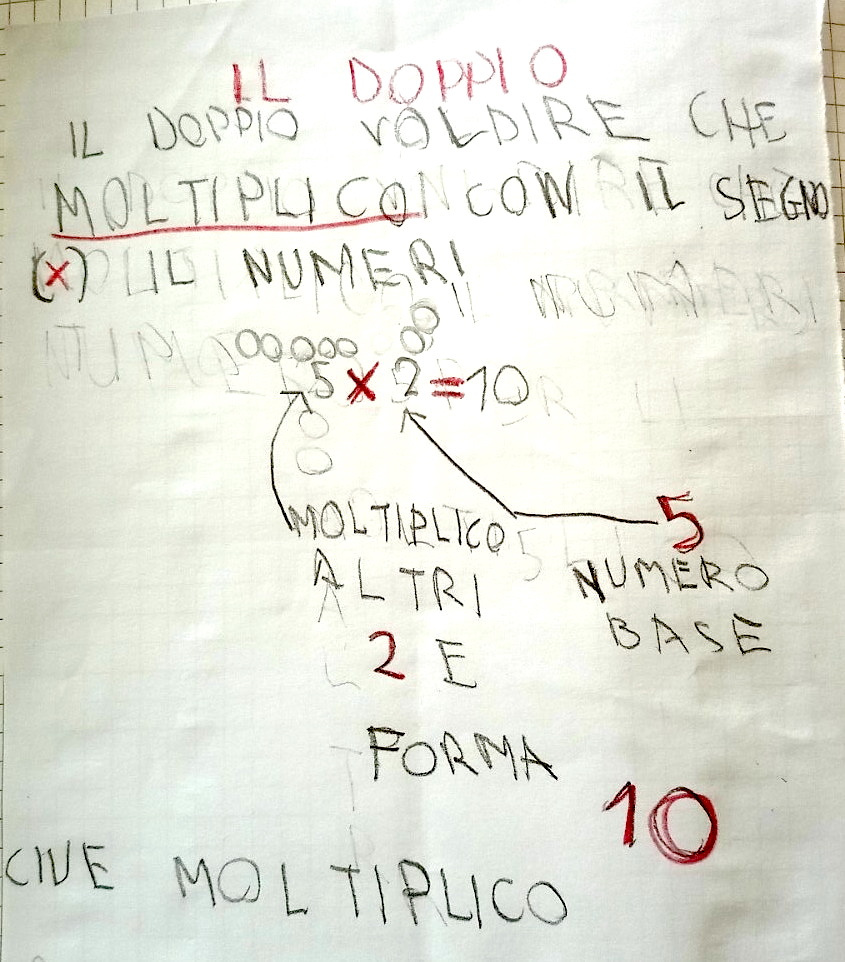 IL DOPPIO
IL DOPPIO VOLDIRE CHE
MOLTIPLICO CON IL SEGNO
(×) IL NUMERI
5 × 2 = 10
MOLTIPLICO
ALTRI
2 E
FORMA
5
NUMERO
BASE
10
MOLTIPLICO